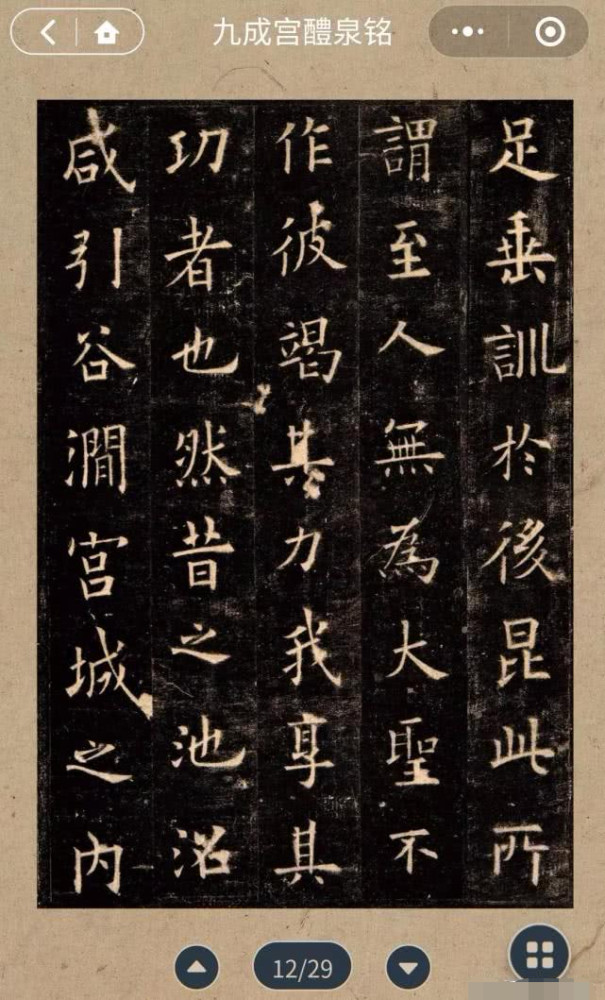 九成宫醴泉铭
足垂訓於後昆此所
謂至人無為大聖不
作彼竭其力我享其
功者也然昔之池沼
咸引谷澗宫城之内
12/29